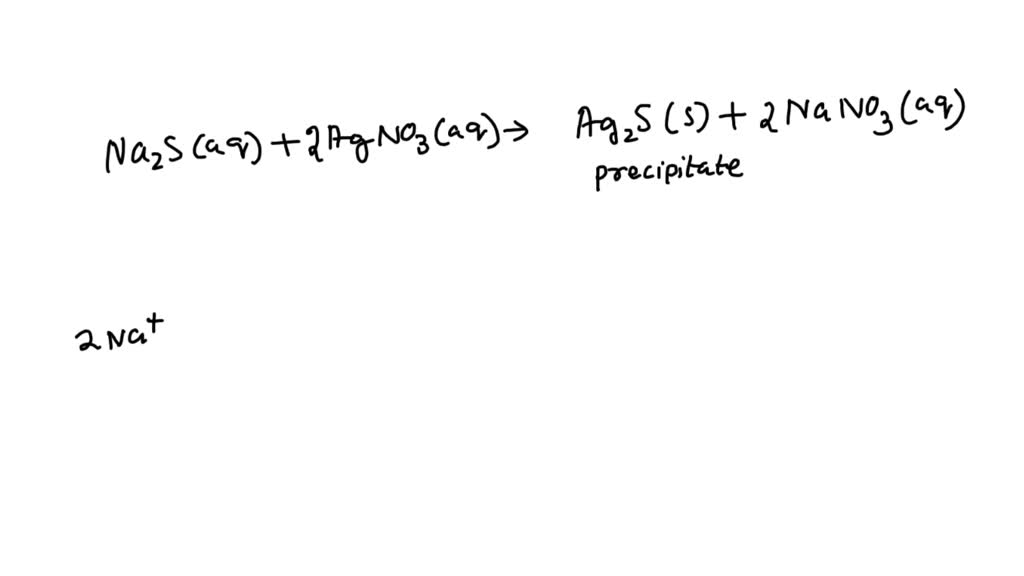 Na₂S (aq) + 2AgNO₃ (aq) → Ag₂S (s) + 2 NaNO₃ (aq)
precipitate
2 Na⁺